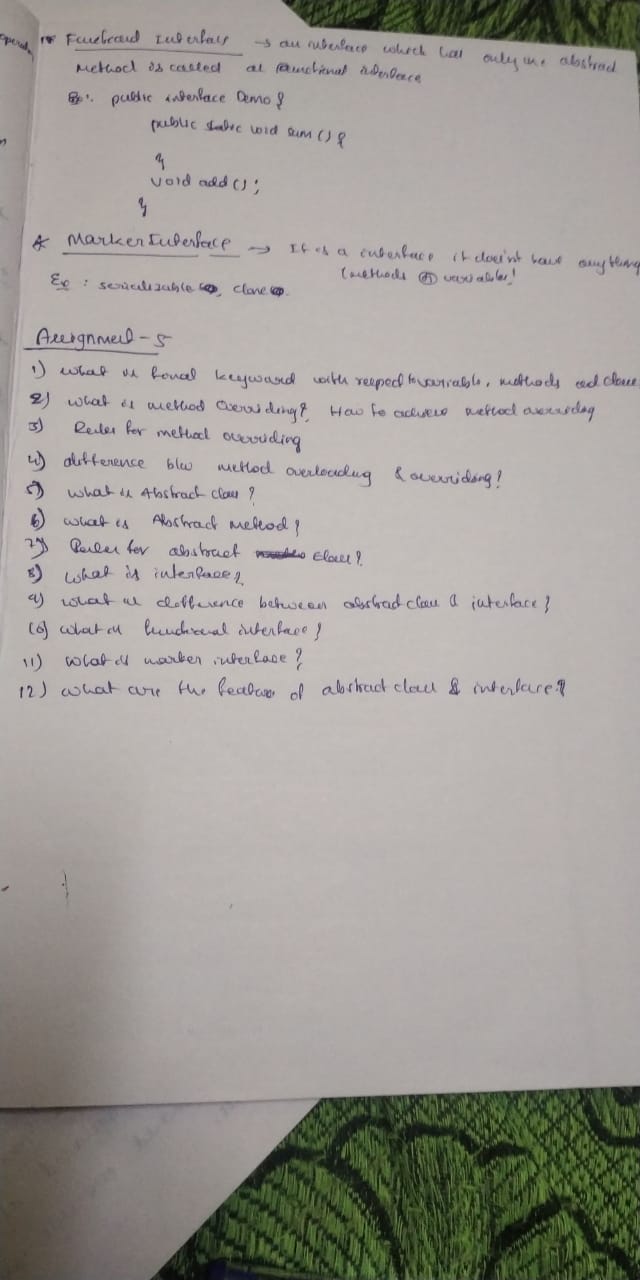 * Functional Interface → an interface which has only one abstract
method is called as functional interface
Ex: public interface Demo {
public static void sum () {
}
void add();
}
* Marker Interface → It is a interface it doesn't have anything
(methods or variables)
Ex : serializable, clone
Assignment - 5
1) what is final keyword with respect to variable, methods and class
2) what is method overriding? How to achieve method overriding
3) Rules for method overriding
4) difference b/w method overloading & overriding?
5) what is Abstract class ?
6) what is Abstract method?
7) Rules for abstract class?
8) what is interface?
9) what is difference between abstract class & interface?
10) what is functional interface?
11) what is marker interface?
12) what are the features of abstract class & interface?